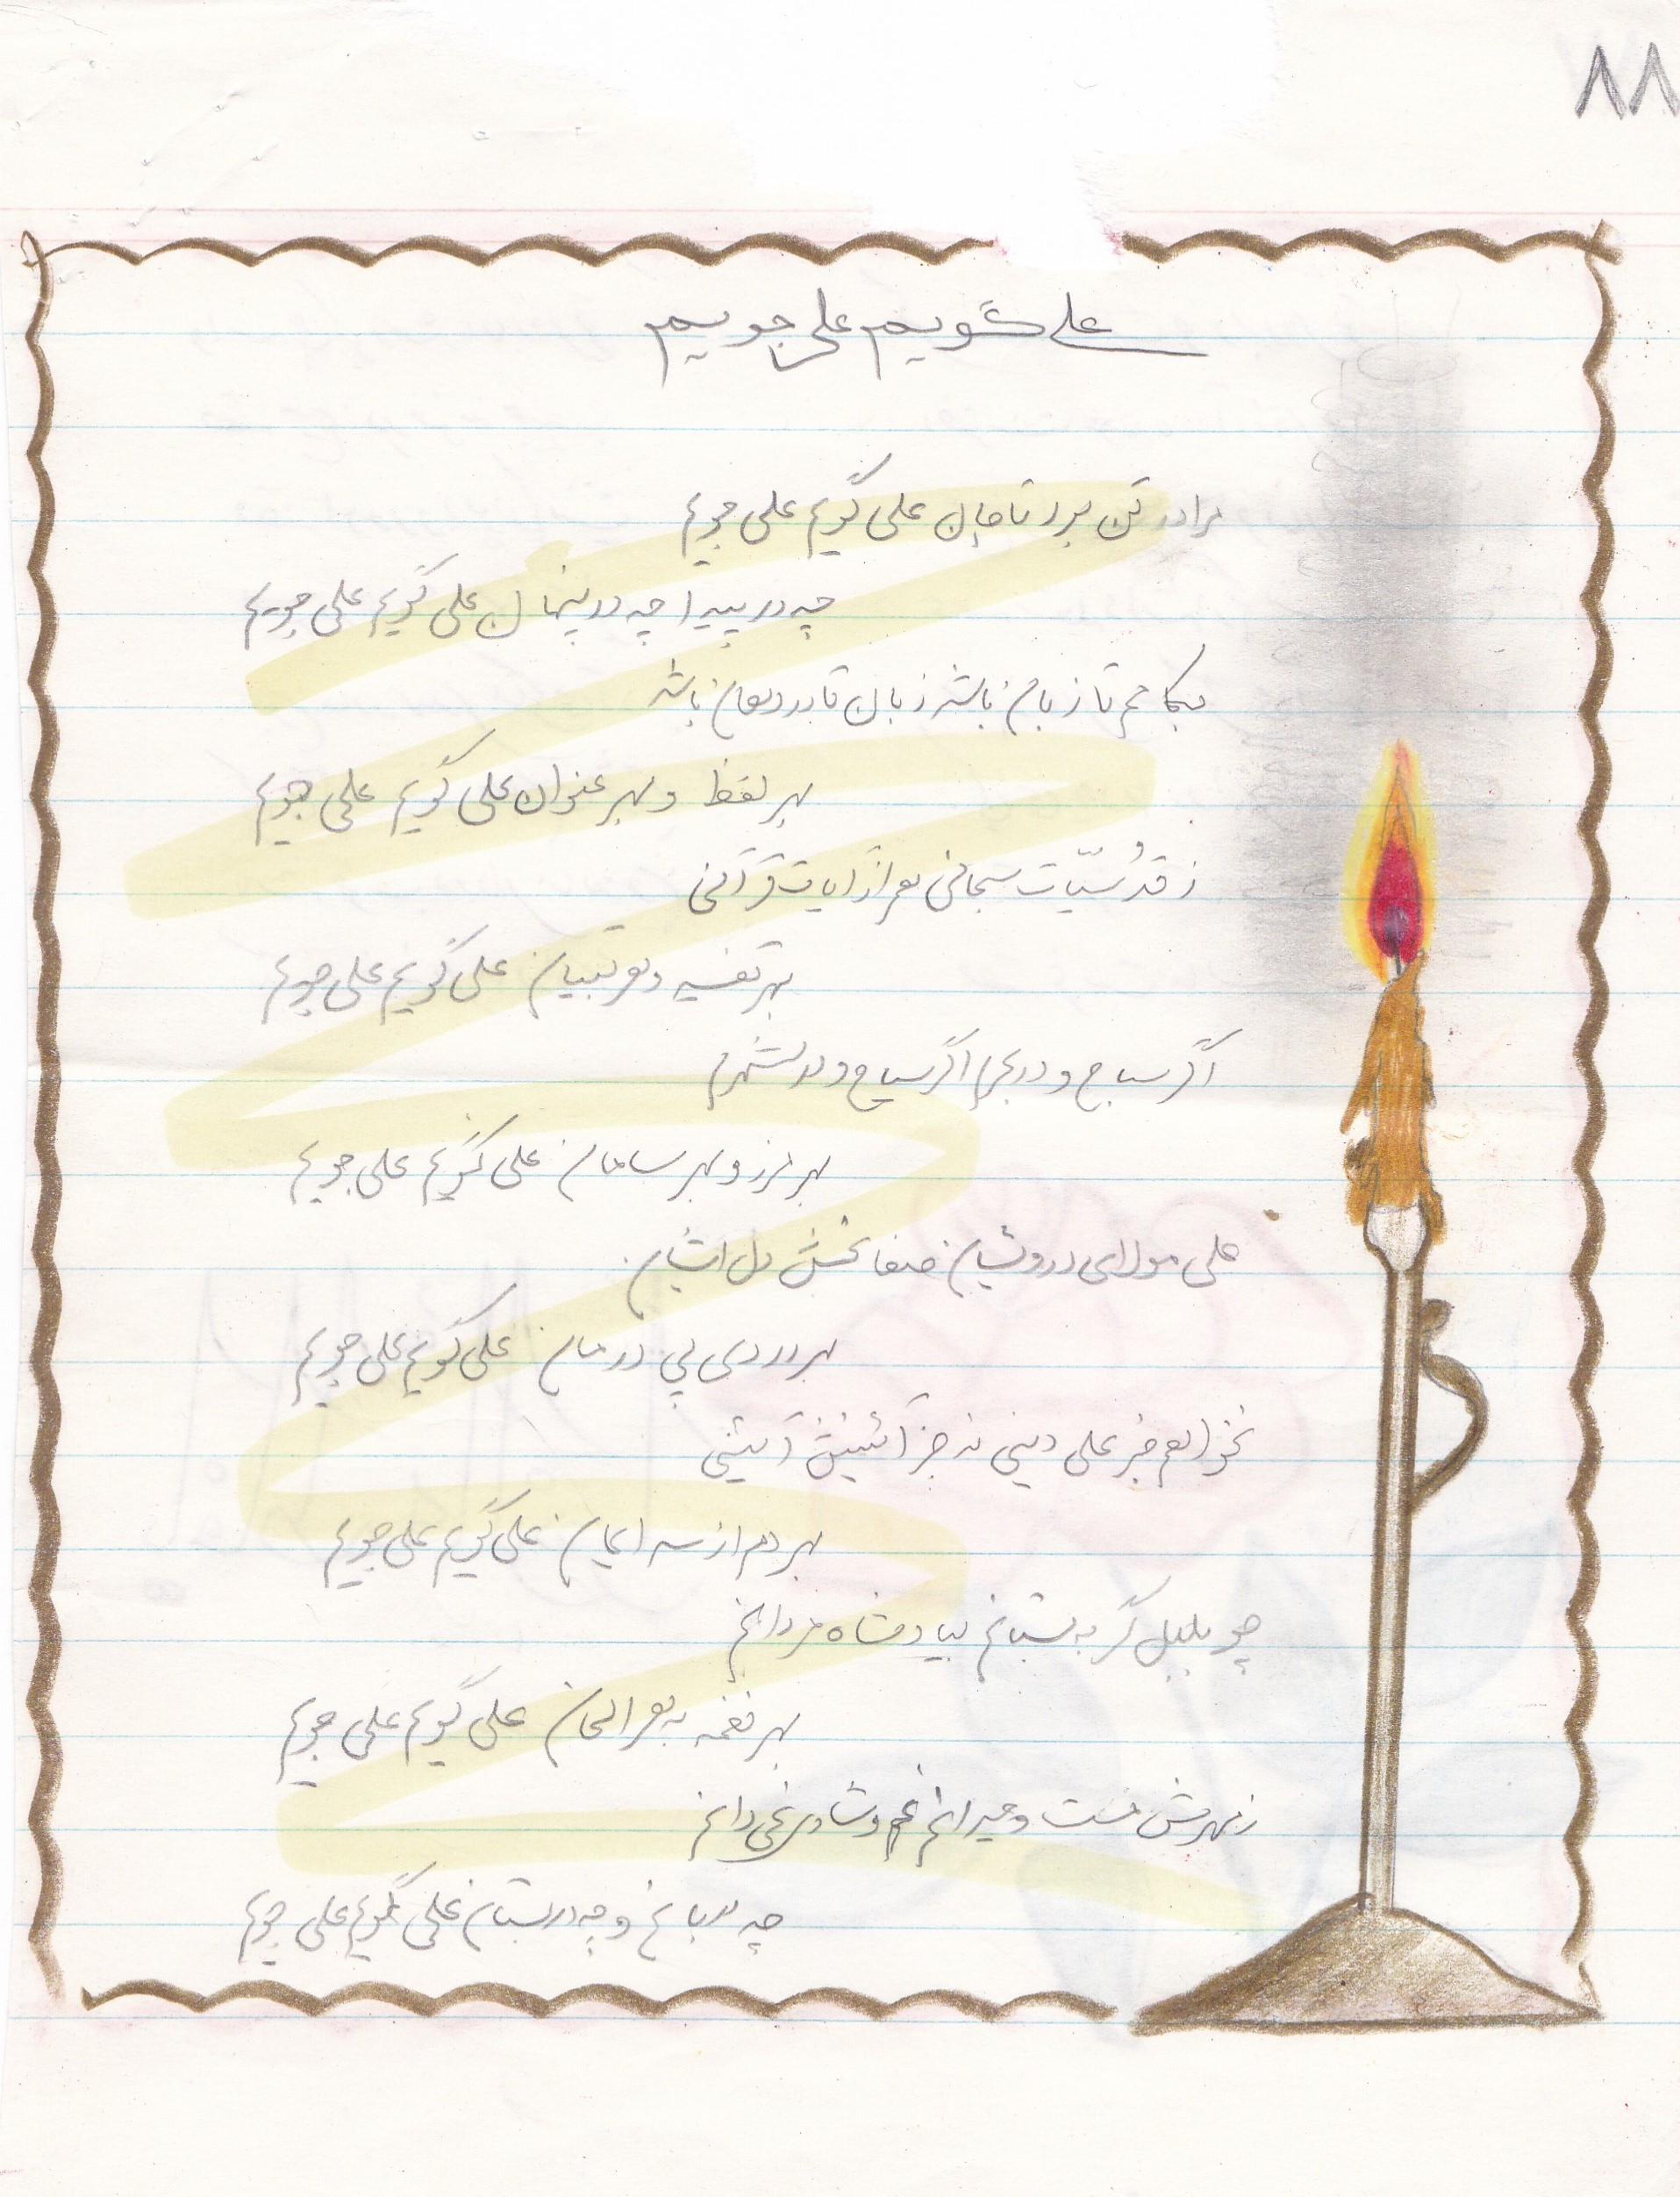 ۸۸
علی گویم علی جویم
مرا در تن بود تا جان علی گویم علی جویم
چه در پیدا چه در پنهان علی گویم علی جویم
بکامم تا زبان باشد زبان تا در دهان باشد
بهر لفظ و بهر عنوان علی گویم علی جویم
ز قدُسیّات سبحانی هم از آیات قرآنی
بهر تفسیر و هر تبیان علی گویم علی جویم
اگر سباح و در بحرم اگر سیاح و در شهرم
بهر مرز و بهر سامان علی گویم علی جویم
علی مولای درویشان صفا بخش دل ایشان
بهر دردی پی درمان علی گویم علی جویم
نخواهم جز علی دینی نه جز آئینش آئینی
بهر دم از سر ایمان علی گویم علی جویم
چو بلبل گر به بستانم بیاد شاه مردانم
بهر نغمه بهر الحان علی گویم علی جویم
ز مهرش مست و حیرانم غم و شادی نمی دانم
چه در باغ و چه در بستان علی گویم علی جویم